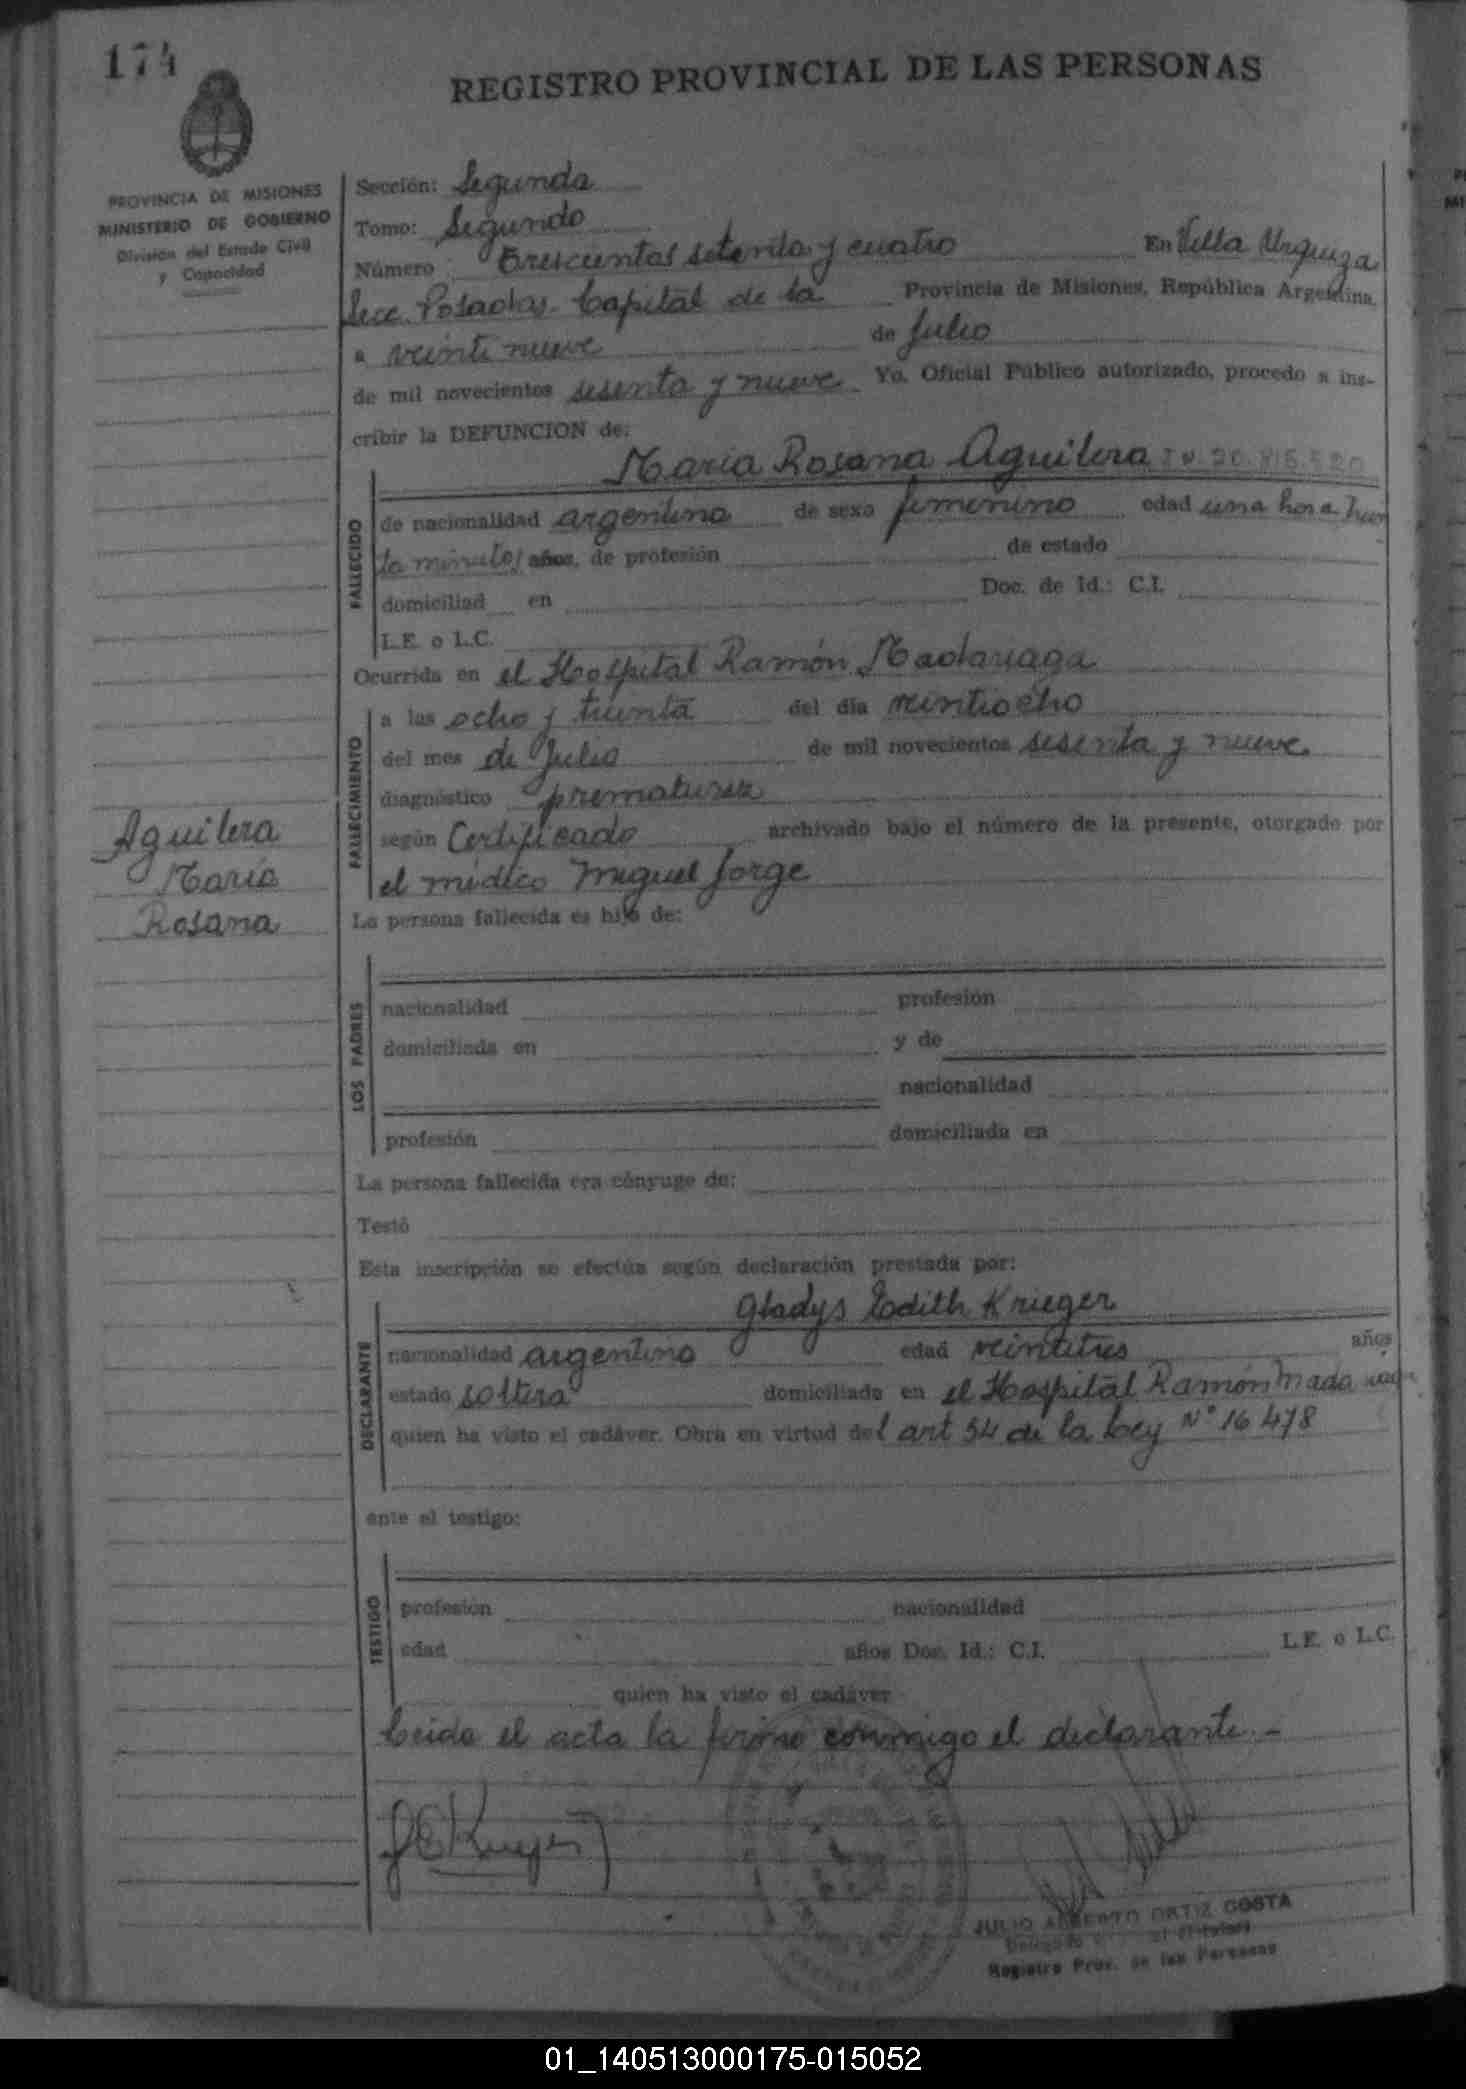 174
REGISTRO PROVINCIAL DE LAS PERSONAS
PROVINCIA DE MISIONES
MINISTERIO DE GOBIERNO
División del Estado Civil
y Capacidad
Sección: Segunda
Tomo: Segundo
Número Trescientos setenta y cuatro En Villa Urquiza
Secc. Posadas. Capital de la Provincia de Misiones, República Argentina,
a veinti nueve de Julio
de mil novecientos sesenta y nueve Yo, Oficial Público autorizado, procedo a ins-
cribir la DEFUNCION de:
Maria Rosana Aguilera
FALLECIDO
de nacionalidad argentina de sexo femenino edad una hora trein
ta minutos años, de profesión de estado
domiciliad en Doc. de Id.: C.I.
L.E. o L.C.
Ocurrida en el Hospital Ramón Madariaga
FALLECIMIENTO
a las ocho y treinta del día veintiocho
del mes de Julio de mil novecientos sesenta y nueve
diagnóstico prematurez
según Certificado archivado bajo el número de la presente, otorgado por
el médico Miguel Jorge
Aguilera
Maria
Rosana
La persona fallecida es hijo de:
LOS PADRES
nacionalidad profesión
domiciliada en y de
nacionalidad
profesión domiciliada en
La persona fallecida era cónyuge de:
Testó
Esta inscripción se efectúa según declaración prestada por:
Gladys Edith Krieger
DECLARANTE
nacionalidad argentina edad veintitres años
estado soltera domiciliada en el Hospital Ramón Madariaga
quien ha visto el cadáver. Obra en virtud del art 54 de la Ley Nº 16 478
ante el testigo:
TESTIGO
profesión nacionalidad
edad años Doc. Id.: C.I. L.E. o L.C.
quien ha visto el cadáver
Leida el acta la firma conmigo el declarante.-
JULIO ALBERTO ORTIZ COSTA
Registro Prov. de las Personas
01_140513000175-015052